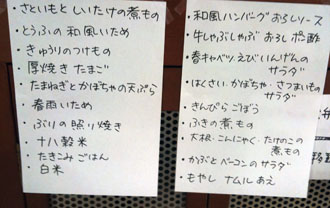 さといもとしいたけの煮もの
とうふの和風いため
きゅうりのつけもの
厚焼きたまご
たまねぎとかぼちゃの天ぷら
春雨いため
ぶりの照り焼き
十八穀米
たきこみごはん
白米
和風ハンバーグおろしソース
牛しゃぶしゃぶおろしポン酢
春キャベツ・えび・いんげんの
サラダ
はくさい・かぼちゃ・さつまいもの
サラダ
きんぴらごぼう
ふきの煮もの
大根・こんにゃく・たけのこの
煮もの
かぶとベーコンのサラダ
もやしナムルあえ